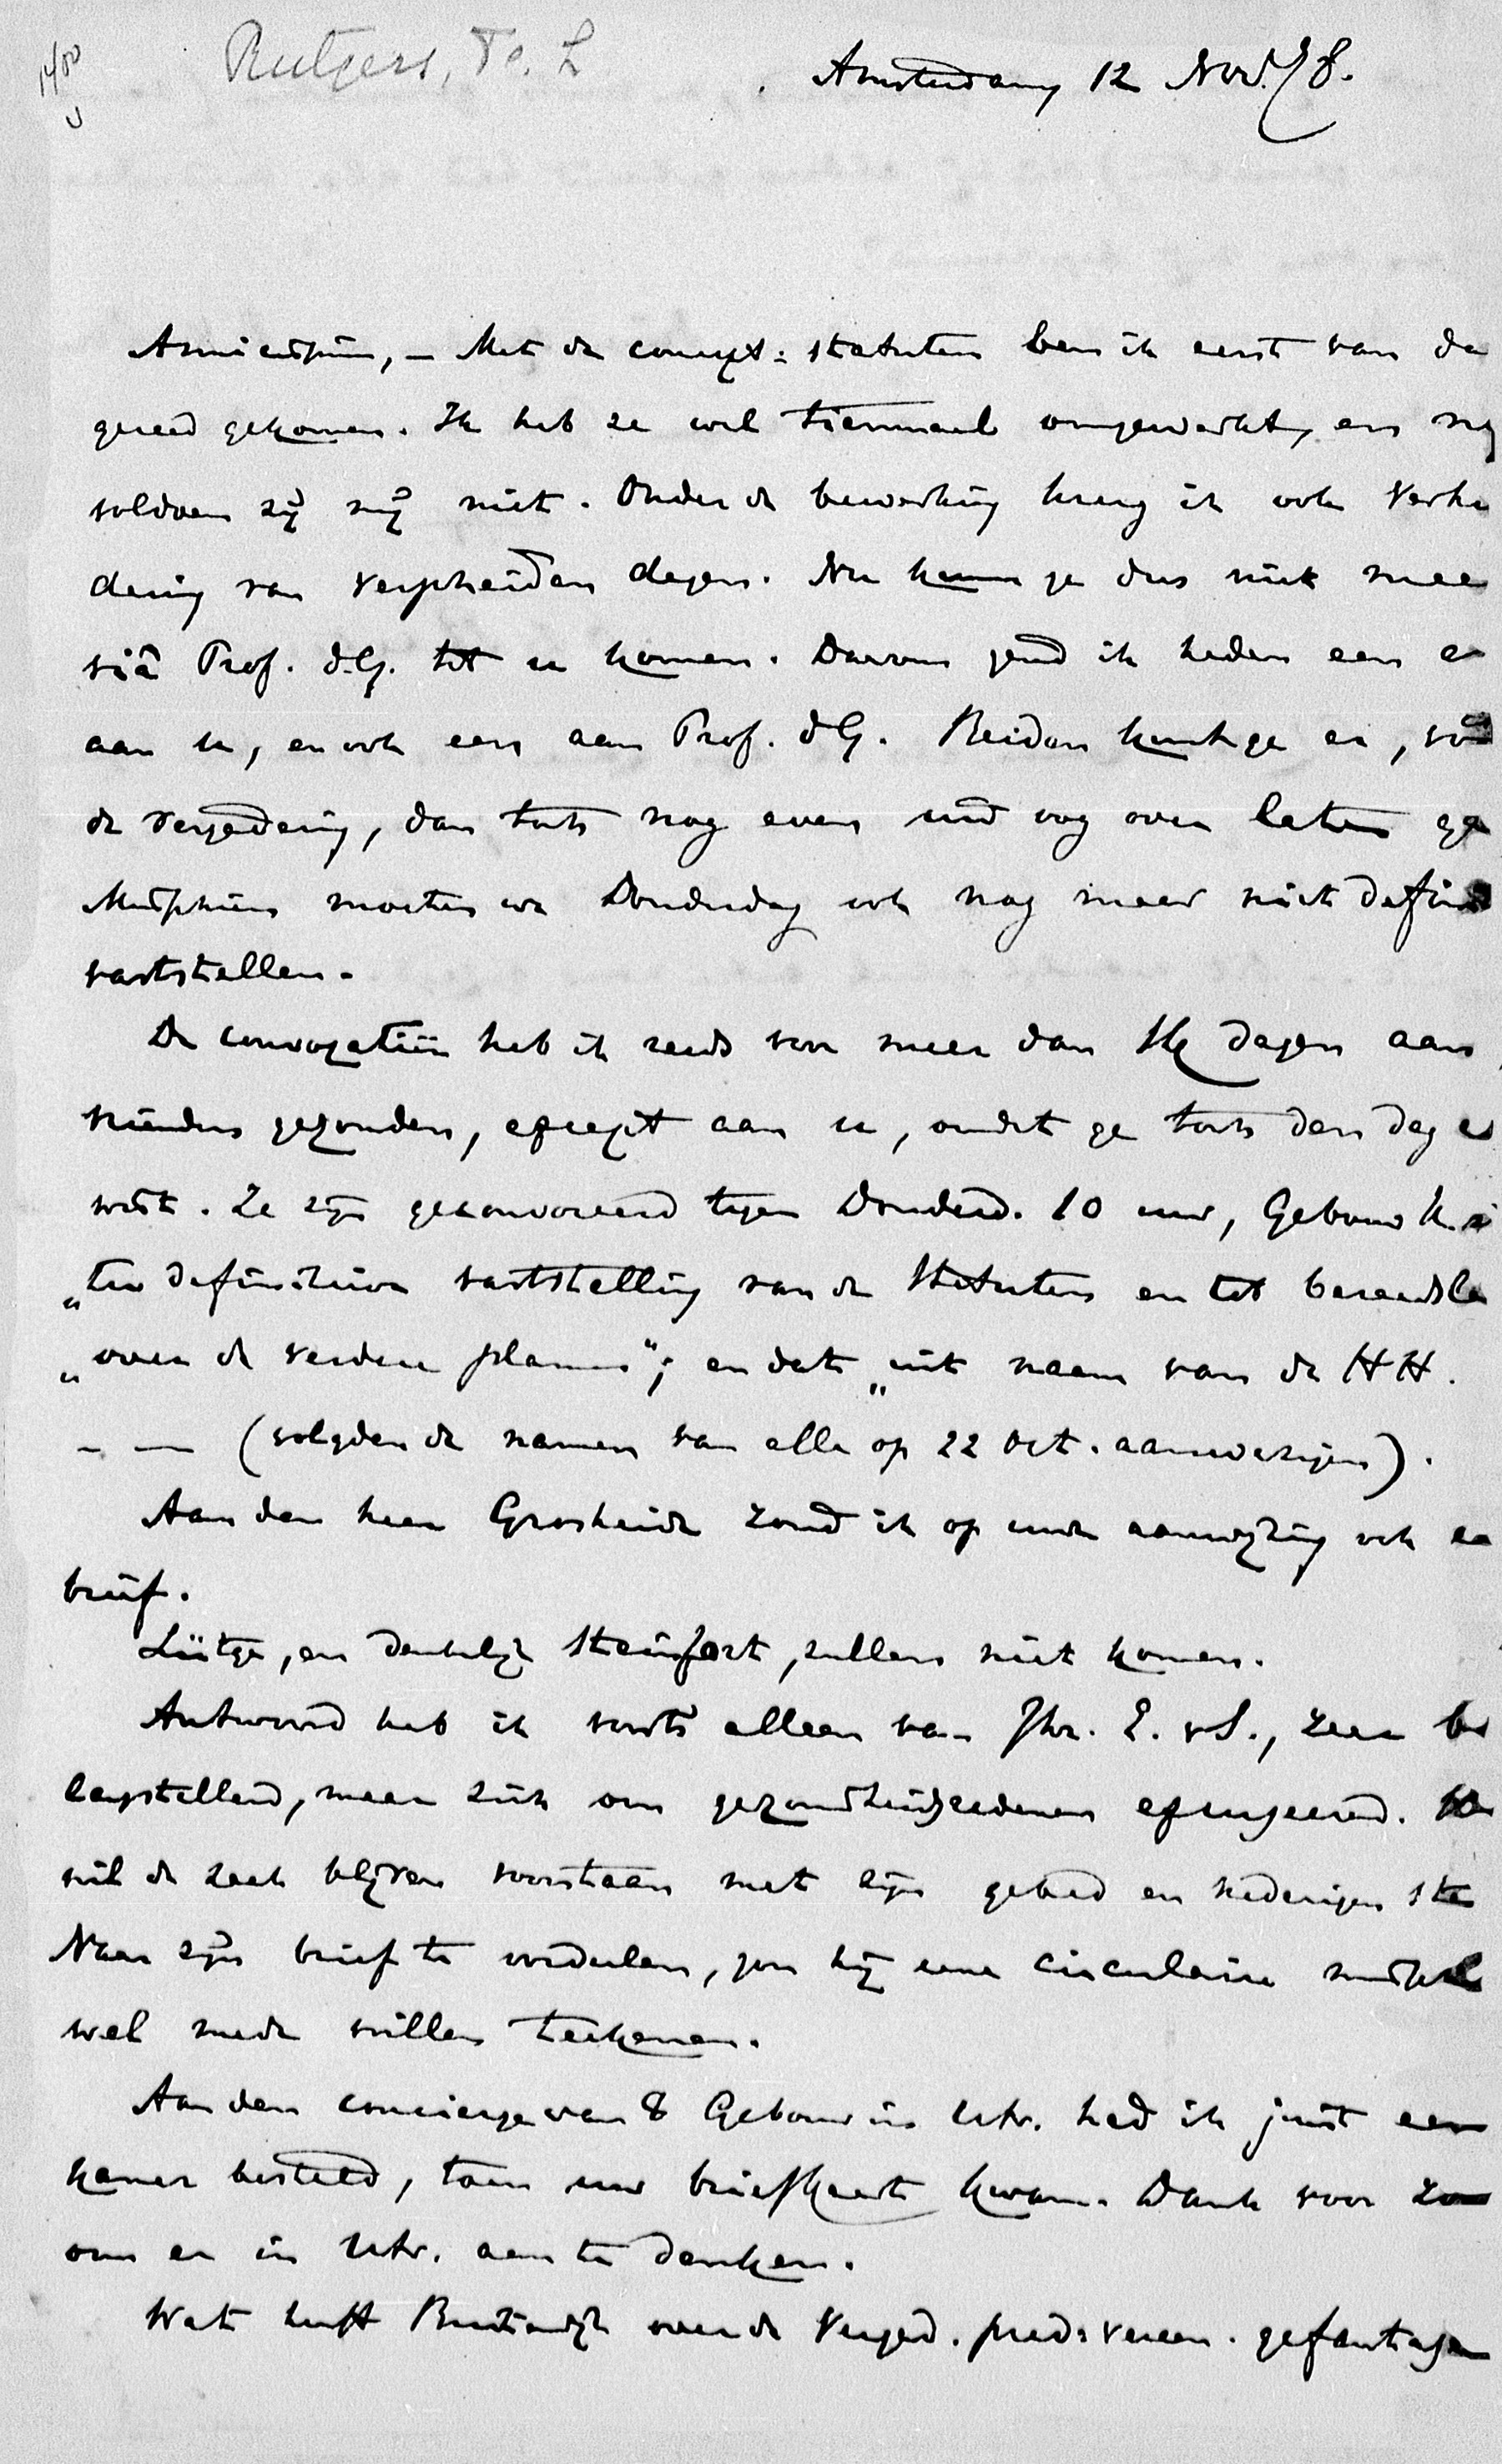 1400
Rutgers, F. L
Amsterdam 12 Nov. 78.
Amicissime, – Met de concept-statuten ben ik eerst van da
gereed gekomen. Ik heb ze wel tienmaal omgewerkt, en nog
voldoen zij mij niet. Onder de bewerking kreeg ik ook verhin
dering van verscheiden dagen. Nu kunnen ze dus niet meer
viâ Prof. d.G. tot u komen. Daarom zend ik heden een ex
aan u, en ook een aan Prof. d G. Beiden kunt ge er, vóó
de vergadering, dan toch nog even uw oog over laten ga
Misschien moeten we Donderdag ook nog maar niet defini
vaststellen.
De convocatiën heb ik reeds voor meer dan 14 dagen aan
vrienden gezonden, except aan u, omdat ge toch den dag
wist. Ze zijn geconvoceerd tegen Donderd. 10 uur, Gebouw K.
„ter definitieve vaststelling van de statuten en tot beraadsla
„over de verdere plannen"; en dat „uit naam van de HH.
– — (volgden de namen van alle op 22 Oct. aanwezigen).
Aan den heer Grosheide zond ik op uwe aanwijzing ook een
brief.
Lütge, en denkelijk Steinfort, zullen niet komen.
Antwoord heb ik voorts alleen van Jhr. E. v S., zeer be
langstellend, maar zich om gezondheidsredenen excuseerend. Hij
wil de zaak blijven voorstaan met zijn gebed en nederigen ste
Naar zijn brief te oordeelen, zou hij eene circulaire misschl
wel mede willen teekenen.
Aan den concierge van 't Gebouw in Utr. had ik juist een
kamer besteld, toen uw briefkaart kwam. Dank voor zo
om er in Utr. aan te denken.
Wat heeft Buitendijk over de Vergad. pred. vereen. gefantasee